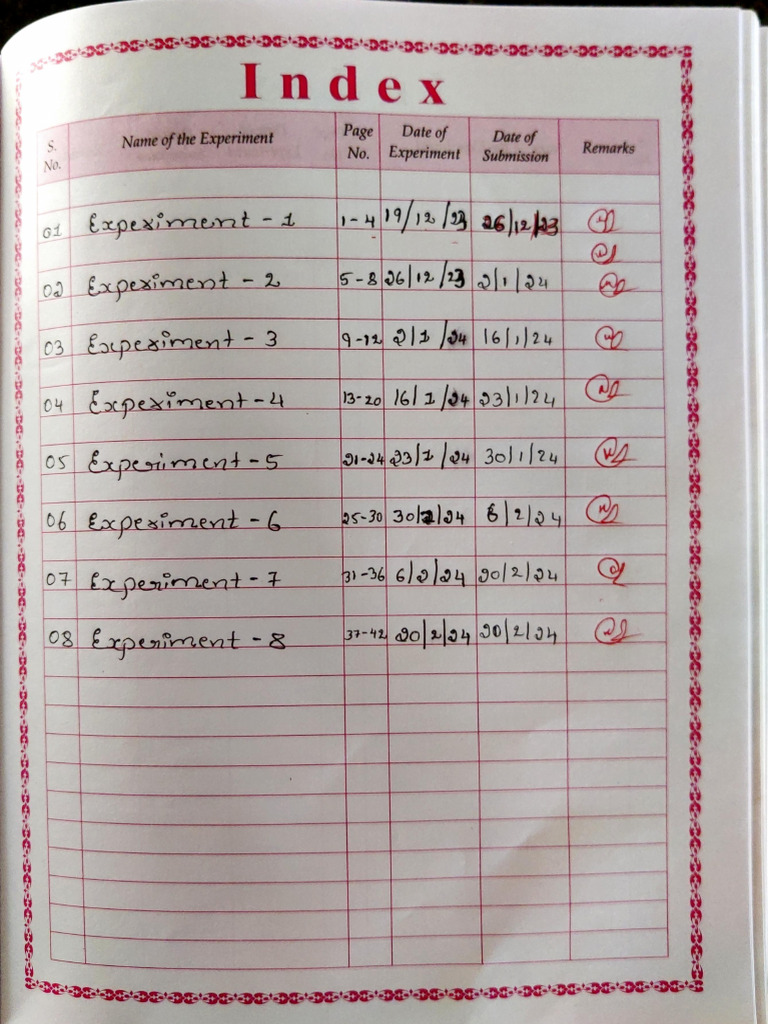 Index
S. No. Name of the Experiment Page No. Date of Experiment Date of Submission Remarks
01 Experiment - 1 1-4 19/12/23 26/12/23
02 Experiment - 2 5-8 26/12/23 2/1/24
03 Experiment - 3 9-12 2/1/24 16/1/24
04 Experiment - 4 13-20 16/1/24 23/1/24
05 Experiment - 5 21-24 23/1/24 30/1/24
06 Experiment - 6 25-30 30/1/24 6/2/24
07 Experiment - 7 31-36 6/2/24 20/2/24
08 Experiment - 8 37-42 20/2/24 20/2/24